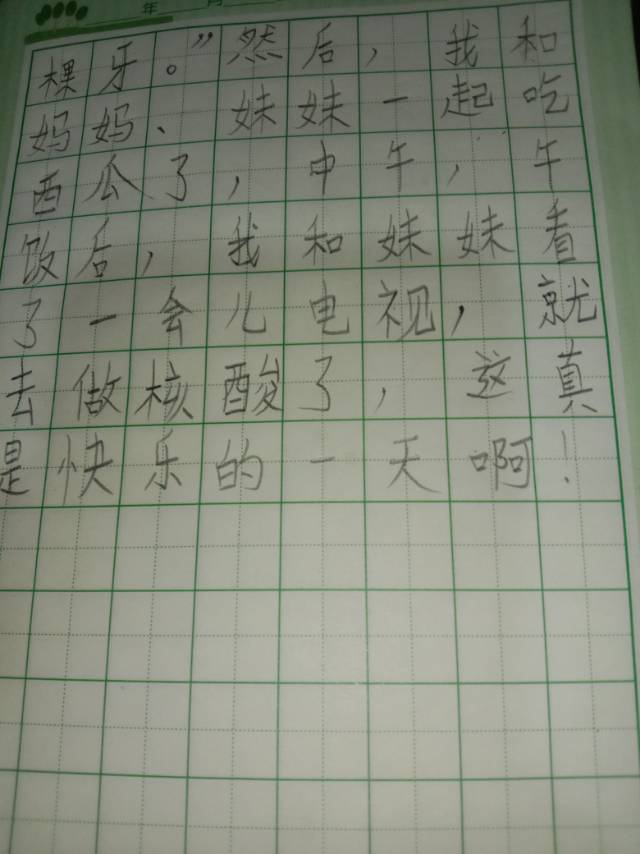 年 月
棵牙。”然后，我和
妈妈、妹妹一起吃
西瓜了，中午，午
饭后，我和妹妹看
了一会儿电视，就
去做核酸了，这真
是快乐的一天啊！